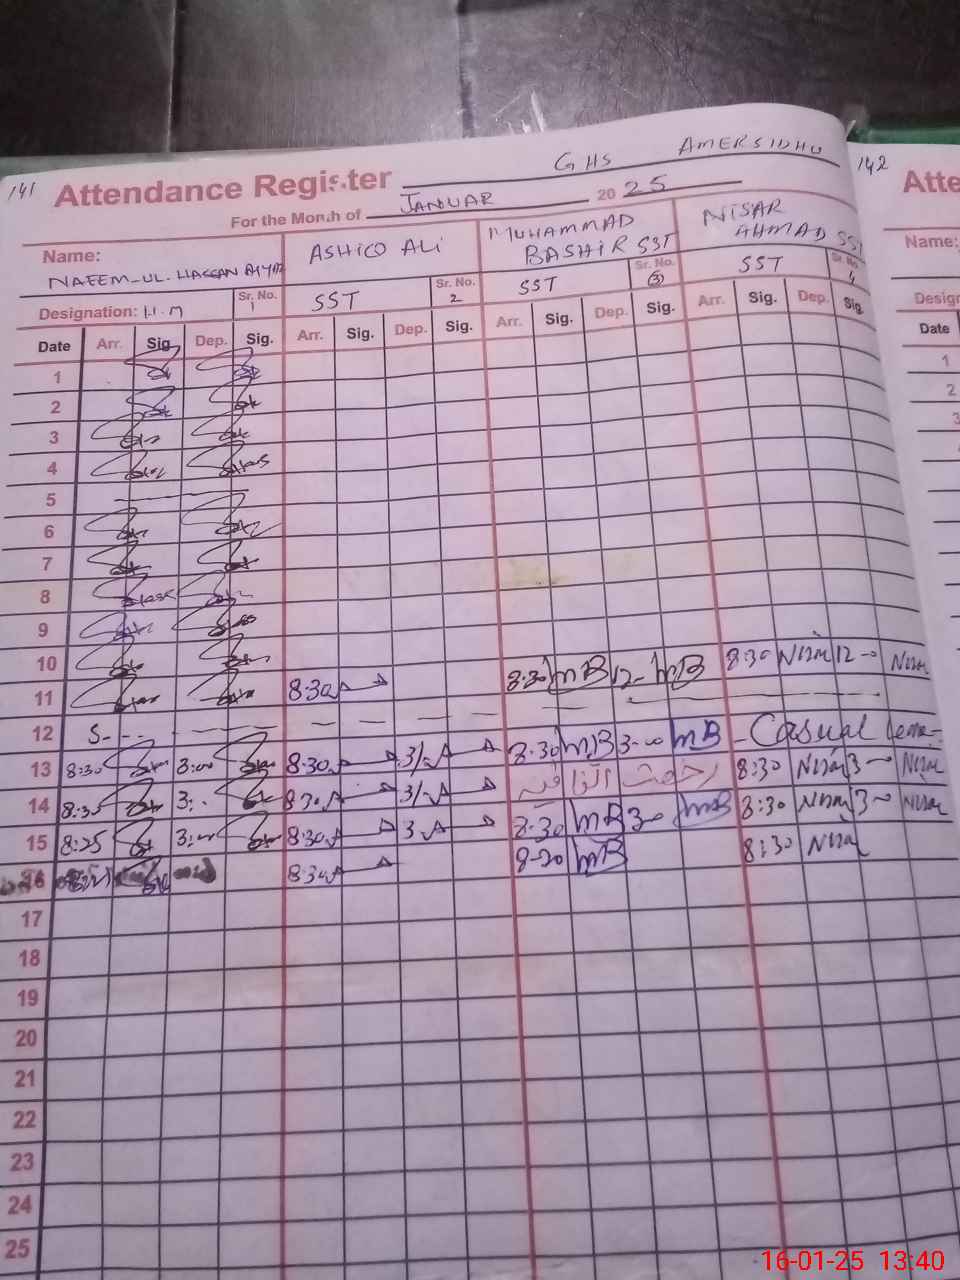 141
GHS AMERSIDHU
142
Attendance Register
Atte
For the Month of JANUAR 2025
Name:
NAEEM-UL-HASSAN
ASHIQ ALI
MUHAMMAD BASHIR SST
NISAR AHMAD SST
Name:
Designation: H.M
Sr. No.
SST
Sr. No. 2
SST
Sr. No. 3
SST
Sr. No. 4
Desigr
Date Arr. Sig. Dep. Sig. Arr. Sig. Dep. Sig. Arr. Sig. Dep. Sig. Arr. Sig. Dep. Sig.
Date
1
1
2
2
3
3
4
5
6
7
8
9
10
8:30 Nisar 12-0 Nisar
11 8:30 8:30 MB 12- MB
12 S-
13 8:30 3:00 8:30 3/- 8:30 MB 3-00 MB Casual leave
14 8:35 3:- 8:30 3/- رخصت اتفاقیہ 8:30 Nisar 3-0 Nisar
15 8:25 3:00 8:30 3 8-30 MB 3-0 MB 8:30 Nisar 3-0 Nisar
16 8:30 8-30 MB 8:30 Nisar
17
18
19
20
21
22
23
24
25
16-01-25 13:40